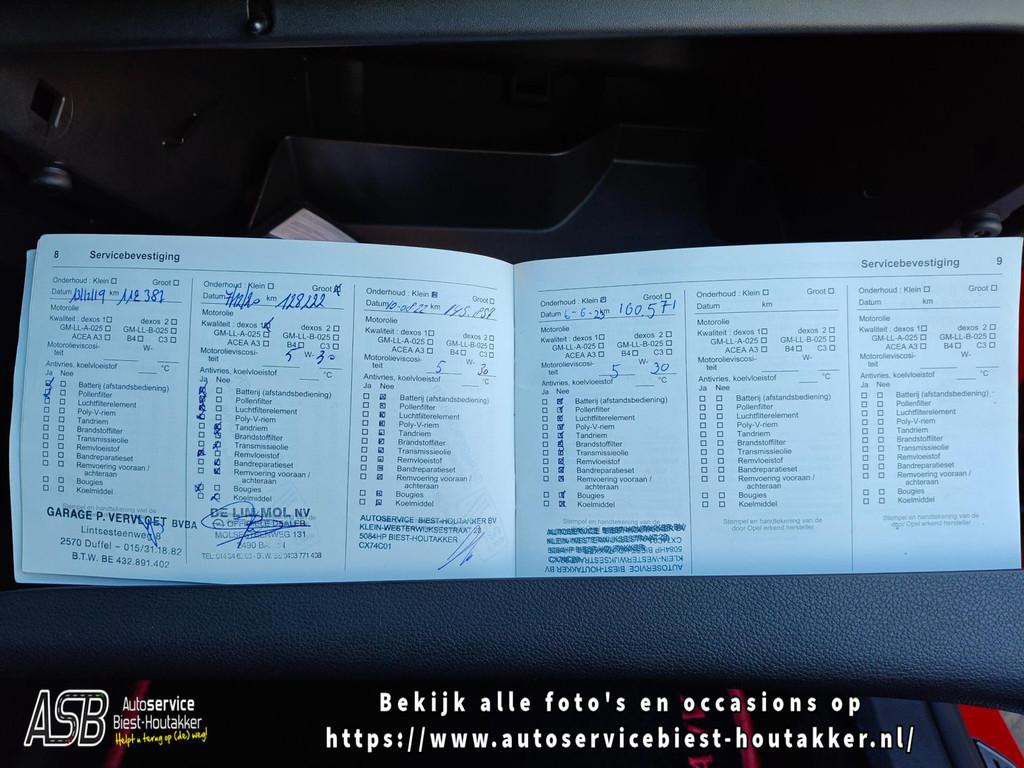 8 Servicebevestiging
Onderhoud : Klein Groot
Datum km 112 387
Motorolie
Kwaliteit : dexos 1 dexos 2
GM-LL-A-025 GM-LL-B-025
ACEA A3 B4 C3
Motorolieviscosi- W-
teit
Antivries, koelvloeistof °C
Ja Nee
Batterij (afstandsbediening)
Pollenfilter
Luchtfilterelement
Poly-V-riem
Tandriem
Brandstoffilter
Transmissieolie
Remvloeistof
Bandreparatieset
Remvoering vooraan /
achteraan
Bougies
Koelmiddel
GARAGE P. VERVLOET BVBA
Lintsesteenweg
2570 Duffel – 015/31.18.82
B.T.W. BE 432.891.402
Onderhoud : Klein Groot
Datum km 128222
Motorolie
Kwaliteit : dexos 1 dexos 2
GM-LL-A-025 GM-LL-B-025
ACEA A3 B4 C3
Motorolieviscosi- 5 W- 30
teit
Antivries, koelvloeistof °C
Ja Nee
Batterij (afstandsbediening)
Pollenfilter
Luchtfilterelement
Poly-V-riem
Tandriem
Brandstoffilter
Transmissieolie
Remvloeistof
Bandreparatieset
Remvoering vooraan /
achteraan
Bougies
Koelmiddel
MOL NV
DEALER
131
Onderhoud : Klein Groot
Datum km
Motorolie
Kwaliteit : dexos 1 dexos 2
GM-LL-A-025 GM-LL-B-025
ACEA A3 B4 C3
Motorolieviscosi- W-
teit 5 30
Antivries, koelvloeistof °C
Ja Nee
Batterij (afstandsbediening)
Pollenfilter
Luchtfilterelement
Poly-V-riem
Tandriem
Brandstoffilter
Transmissieolie
Remvloeistof
Bandreparatieset
Remvoering vooraan /
achteraan
Bougies
Koelmiddel
AUTOSERVICE BIEST-HOUTAKKER BV
KLEIN-WESTERWIJKSESTRAAT 23
5084HP BIEST-HOUTAKKER
CX74C01
Servicebevestiging 9
Onderhoud : Klein Groot
Datum km 160571
Motorolie
Kwaliteit : dexos 1 dexos 2
GM-LL-A-025 GM-LL-B-025
ACEA A3 B4 C3
Motorolieviscosi- W-
teit 5 30
Antivries, koelvloeistof °C
Ja Nee
Batterij (afstandsbediening)
Pollenfilter
Luchtfilterelement
Poly-V-riem
Tandriem
Brandstoffilter
Transmissieolie
Remvloeistof
Bandreparatieset
Remvoering vooraan /
achteraan
Bougies
Koelmiddel
Stempel en handtekening van de
AUTOSERVICE BIEST-HOUTAKKER BV
KLEIN-WESTERWIJKSESTRAAT 23
5084HP BIEST-HOUTAKKER
CX74C01
Onderhoud : Klein Groot
Datum km
Motorolie
Kwaliteit : dexos 1 dexos 2
GM-LL-A-025 GM-LL-B-025
ACEA A3 B4 C3
Motorolieviscosi- W-
teit
Antivries, koelvloeistof °C
Ja Nee
Batterij (afstandsbediening)
Pollenfilter
Luchtfilterelement
Poly-V-riem
Tandriem
Brandstoffilter
Transmissieolie
Remvloeistof
Bandreparatieset
Remvoering vooraan /
achteraan
Bougies
Koelmiddel
Stempel en handtekening van de
door Opel erkend hersteller
Onderhoud : Klein Groot
Datum km
Motorolie
Kwaliteit : dexos 1 dexos 2
GM-LL-A-025 GM-LL-B-025
ACEA A3 B4 C3
Motorolieviscosi- W-
teit
Antivries, koelvloeistof °C
Ja Nee
Batterij (afstandsbediening)
Pollenfilter
Luchtfilterelement
Poly-V-riem
Tandriem
Brandstoffilter
Transmissieolie
Remvloeistof
Bandreparatieset
Remvoering vooraan /
achteraan
Bougies
Koelmiddel
Stempel en handtekening van de
door Opel erkend hersteller
ASB Autoservice
Biest-Houtakker
Helpt u terug op (de) weg!
Bekijk alle foto's en occasions op
https://www.autoservicebiest-houtakker.nl/